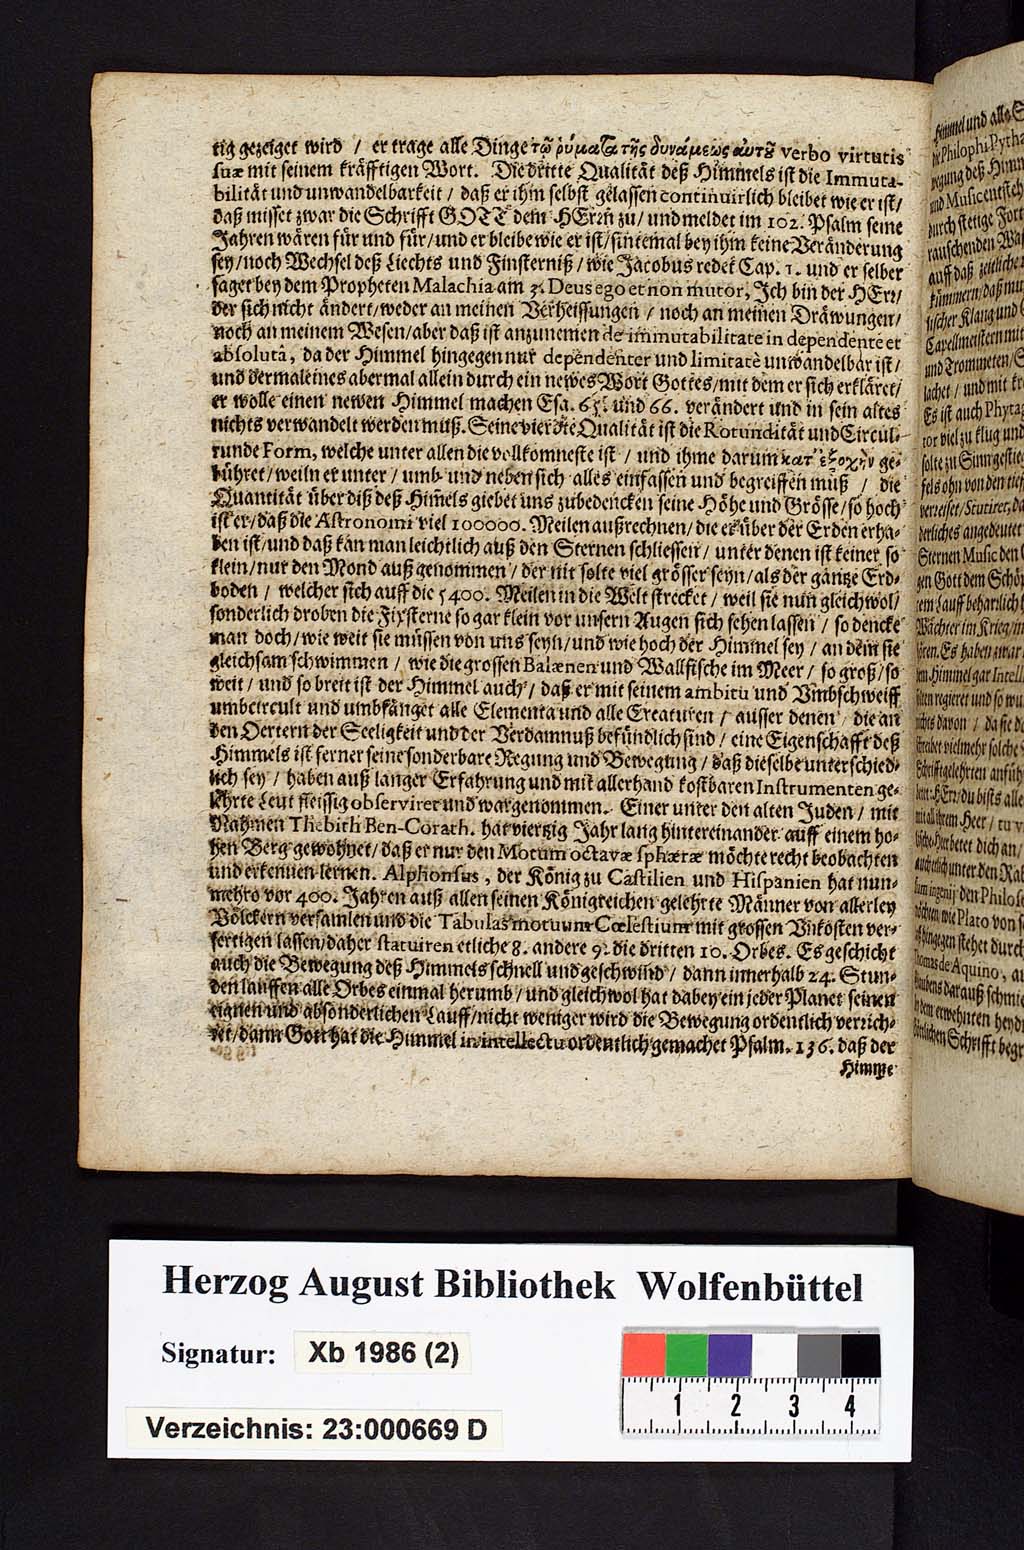 tig gezeiget wird / er trage alle Dinge τῷ ῥύματα τῆς δυνάμεως αὐτοῦ verbo virtutis
suæ mit seinem kräfftigen Wort. Die dritte Qualität deß Himmels ist die Immuta-
bilität und unwandelbarkeit / daß er ihm selbst gelassen continuirlich bleibet wie er ist /
daß misset zwar die Schrifft GOTT dem HErrn zu / und meldet im 102. Psalm seine
Jahren wären für und für / und er bleibe wie er ist / sintemal bey ihm keine Veränderung
sey / noch Wechsel deß Liechts und Finsterniß / wie Jacobus redet Cap. 1. und er selber
saget bey dem Propheten Malachia am 3. Deus ego et non mutor, Ich bin der HErr /
der sich nicht ändert / weder an meinen Verheissungen / noch an meinen Dräwungen /
noch an meinem Wesen / aber daß ist anzunemen de immutabilitate independente et
absolutâ, da der Himmel hingegen nur dependenter und limitatè unwandelbar ist /
und dermaleines abermal allein durch ein newes Wort Gottes / mit dem er sich erkläret /
er wolle einen newen Himmel machen Esa. 65. und 66. verändert und in sein altes
nichts verwandelt werden muß. Seine vierdte Qualität ist die Rotundität und Circul-
runde Form, welche unter allen die vollkomneste ist / und ihme darum κατ' ἐξοχὴν ge-
bühret / weiln er unter / umb und neben sich alles einfassen und begreiffen muß / die
Quantität über diß deß Him̃els giebet uns zubedencken seine Höhe und Grösse / so hoch
ist er / daß die Astronomi viel 100000. Meilen außrechnen / die er über der Erden erha-
ben ist / und daß kan man leichtlich auß den Sternen schliessen / unter denen ist keiner so
klein / nur den Mond außgenommen / der nit solte viel grösser seyn / als der gantze Erd-
boden / welcher sich auff die 5400. Meilen in die Welt strecket / weil sie nun gleichwol /
sonderlich droben die Fixsterne so gar klein vor unsern Augen sich sehen lassen / so dencke
man doch / wie weit sie müssen von uns seyn / und wie hoch der Himmel sey / an dem sie
gleichsam schwimmen / wie die grossen Balænen und Wallfische im Meer / so groß / so
weit / und so breit ist der Himmel auch / daß er mit seinem ambitu und Umbschweiff
umbcircult und umbfänget alle Elementa und alle Creaturen / ausser denen / die an
den Oertern der Seeligkeit und der Verdamnuß befündlich sind / eine Eigenschafft deß
Himmels ist ferner seine sonderbare Regung und Bewegung / daß dieselbe unterschied-
lich sey / haben auß langer Erfahrung und mit allerhand kostbaren Instrumenten ge-
lehrte Leut fleissig observiret und wargenommen. Einer unter den alten Juden / mit
Nahmen Thebith Ben-Corath. hat vierzig Jahr lang hintereinander auff einem ho-
hen Berg gewohnet / daß er nur den Motum octavæ sphæræ möchte recht beobachten
und erkennen lernen. Alphonsus, der König zu Castilien und Hispanien hat nun-
mehro vor 400. Jahren auß allen seinen Königreichen gelehrte Männer von allerley
Völckern versamlen und die Tabulas motuum Cœlestium mit grossen Unkosten ver-
fertigen lassen / daher statuiren etliche 8. andere 9. die dritten 10. Orbes. Es geschicht
auch die Bewegung deß Himmels schnell und geschwind / dann innerhalb 24. Stun-
den lauffen alle Orbes einmal herumb / und gleichwol hat dabey ein jeder Planet seinen
eignen und absonderlichen Lauff / nicht weniger wird die Bewegung ordentlich verrich-
tet / dann Gott hat die Himmel in intellectu ordentlich gemachet Psalm. 136. daß der
Himme
Himmel und alle
Philosophi Pytha
regung deß Himm
und Music entsteh
durch stetige Fort
rauschenden Wa
auff daß zeitliche
kümmern / daß mu
lischer Klang und
Capellmeistern mit
und Trommeten /
lachet / und mit
Es ist auch Phytag
tor viel zu klug und
solte zu Sinn gestie
verreiset /
derliches angedeutet
Sternen Music den
gen Gott dem Schöp
rem Lauff beharrlich
Wächter im Krieg /
hören. Es haben zwar
Himmel gar Intelli
regieret und so
nichts davon / da sie
vielmehr solche
Schrifftgelehrten anfüh
HErr / du bists alle
mit all ihrem Heer /
betet dich an /
unter den Rab
ingenij den Philoso
wie Plato von
hingegen stehet durch
Thomas de Aquino, au
darauß schmie
erwehnten heyd
Schrifft begr
Herzog August Bibliothek Wolfenbüttel
Signatur: Xb 1986 (2)
Verzeichnis: 23:000669 D
1 2 3 4